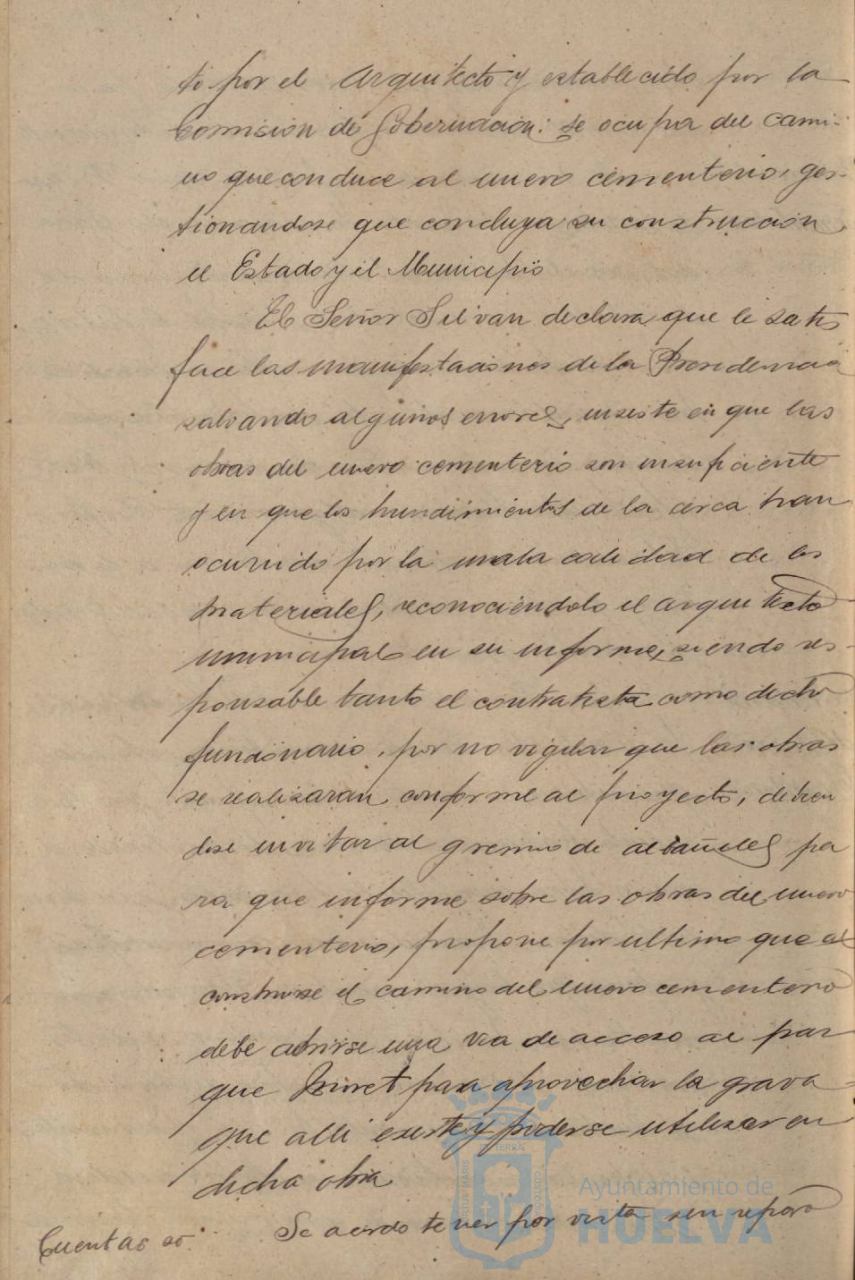 to por el Arquitecto y establecido por la
Comision de Gobernación: se ocupa del cami-
no que conduce al nuevo cementerio, ges-
tionandose que concluya su construcción
el Estado y el Municipio
El Señor Silvan declara que le satis
face las manifestaciones de la Presidencia
salvando algunos errores, insiste en que las
obras del nuevo cementerio son insuficiente
y en que los hundimientos de la cerca han
ocurrido por la mala calidad de los
materiales, reconociendolo el arquitecto
municipal en su informe, siendo res-
ponsable tanto el contratista como dicho
funcionario, por no vigilar que las obras
se realizaran conforme al proyecto, debien
dose invitar al gremio de albañiles pa
ra que informe sobre las obras del nuevo
cementerio, propone por ultimo que al
construirse el camino del nuevo cementerio
debe abrirse una via de acceso al par
que Moret para aprovechar la grava
que alli existe y poderse utilizar en
dicha obra
Cuentas
Se acordo tener por vista sin reparo
Ayuntamiento de
HUELVA